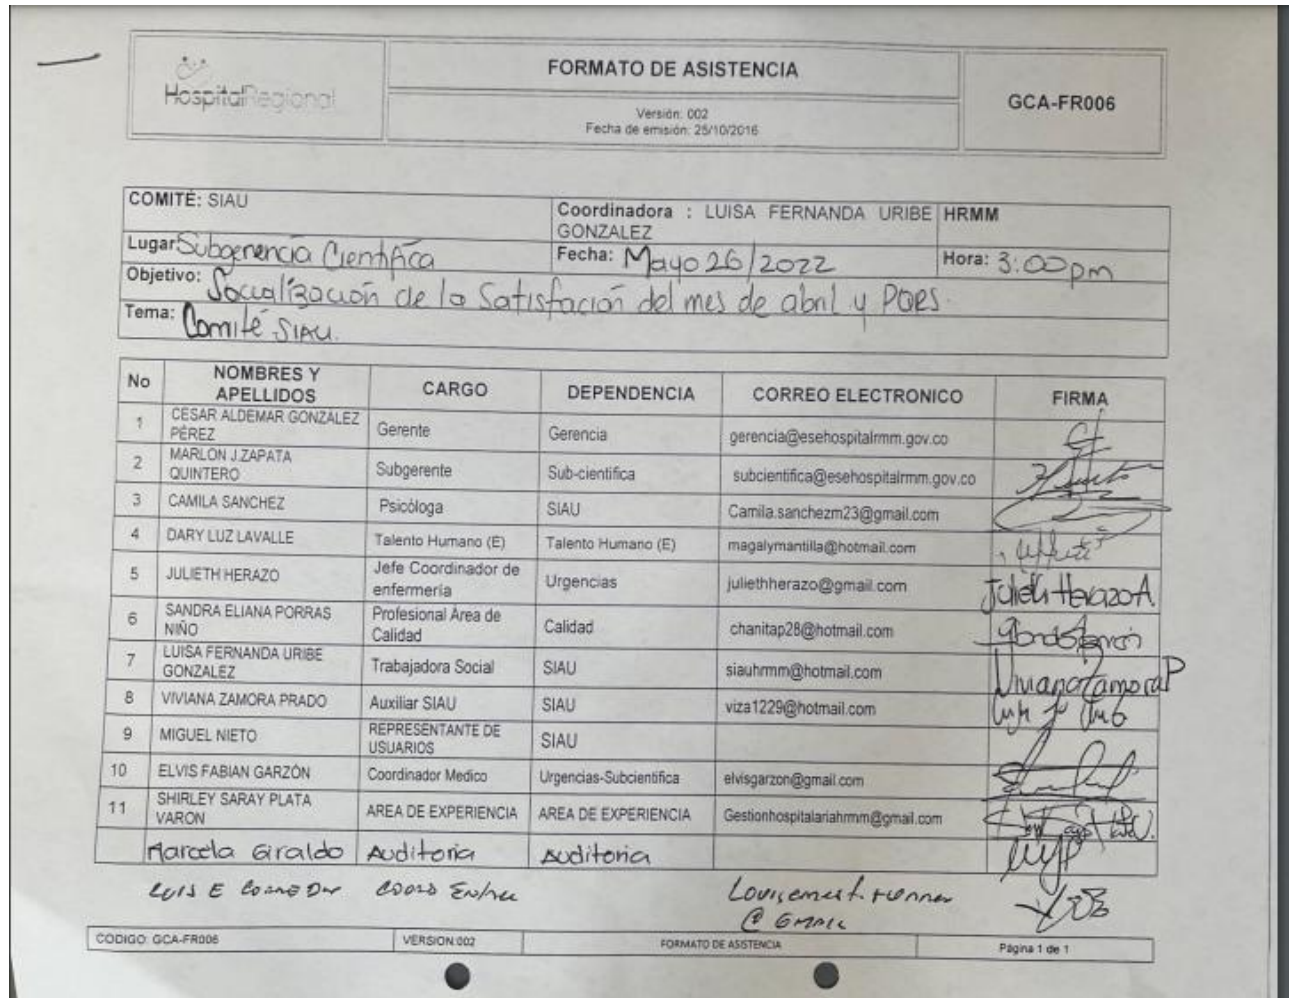 HospitalRegional
FORMATO DE ASISTENCIA
Versión: 002
Fecha de emisión: 25/10/2016
GCA-FR006
COMITÉ: SIAU
Coordinadora : LUISA FERNANDA URIBE GONZALEZ
HRMM
Lugar Subgerencia Cientifica
Fecha: Mayo 26/2022
Hora: 3:00 pm
Objetivo: Socialización de la Satisfación del mes de abril y PQRS.
Tema: Comité SIAU.
No NOMBRES Y APELLIDOS CARGO DEPENDENCIA CORREO ELECTRONICO FIRMA
1 CESAR ALDEMAR GONZÁLEZ PÉREZ Gerente Gerencia gerencia@esehospitalrmm.gov.co
2 MARLON J.ZAPATA QUINTERO Subgerente Sub-cientifica subcientifica@esehospitalrmm.gov.co
3 CAMILA SANCHEZ Psicóloga SIAU Camila.sanchezm23@gmail.com
4 DARY LUZ LAVALLE Talento Humano (E) Talento Humano (E) magalymantilla@hotmail.com
5 JULIETH HERAZO Jefe Coordinador de enfermería Urgencias juliethherazo@gmail.com Julieth Herazo A.
6 SANDRA ELIANA PORRAS NIÑO Profesional Área de Calidad Calidad chanitap28@hotmail.com
7 LUISA FERNANDA URIBE GONZALEZ Trabajadora Social SIAU siauhrmm@hotmail.com Viviana Zamora P
8 VIVIANA ZAMORA PRADO Auxiliar SIAU SIAU viza1229@hotmail.com
9 MIGUEL NIETO REPRESENTANTE DE USUARIOS SIAU
10 ELVIS FABIAN GARZÓN Coordinador Medico Urgencias-Subcientifica elvisgarzon@gmail.com
11 SHIRLEY SARAY PLATA VARON AREA DE EXPERIENCIA AREA DE EXPERIENCIA Gestionhospitalariahrmm@gmail.com
Marcela Giraldo Auditoria Auditoria
Luis E Coord
@ GMAIL
CODIGO: GCA-FR006 VERSION:002 FORMATO DE ASISTENCIA Página 1 de 1